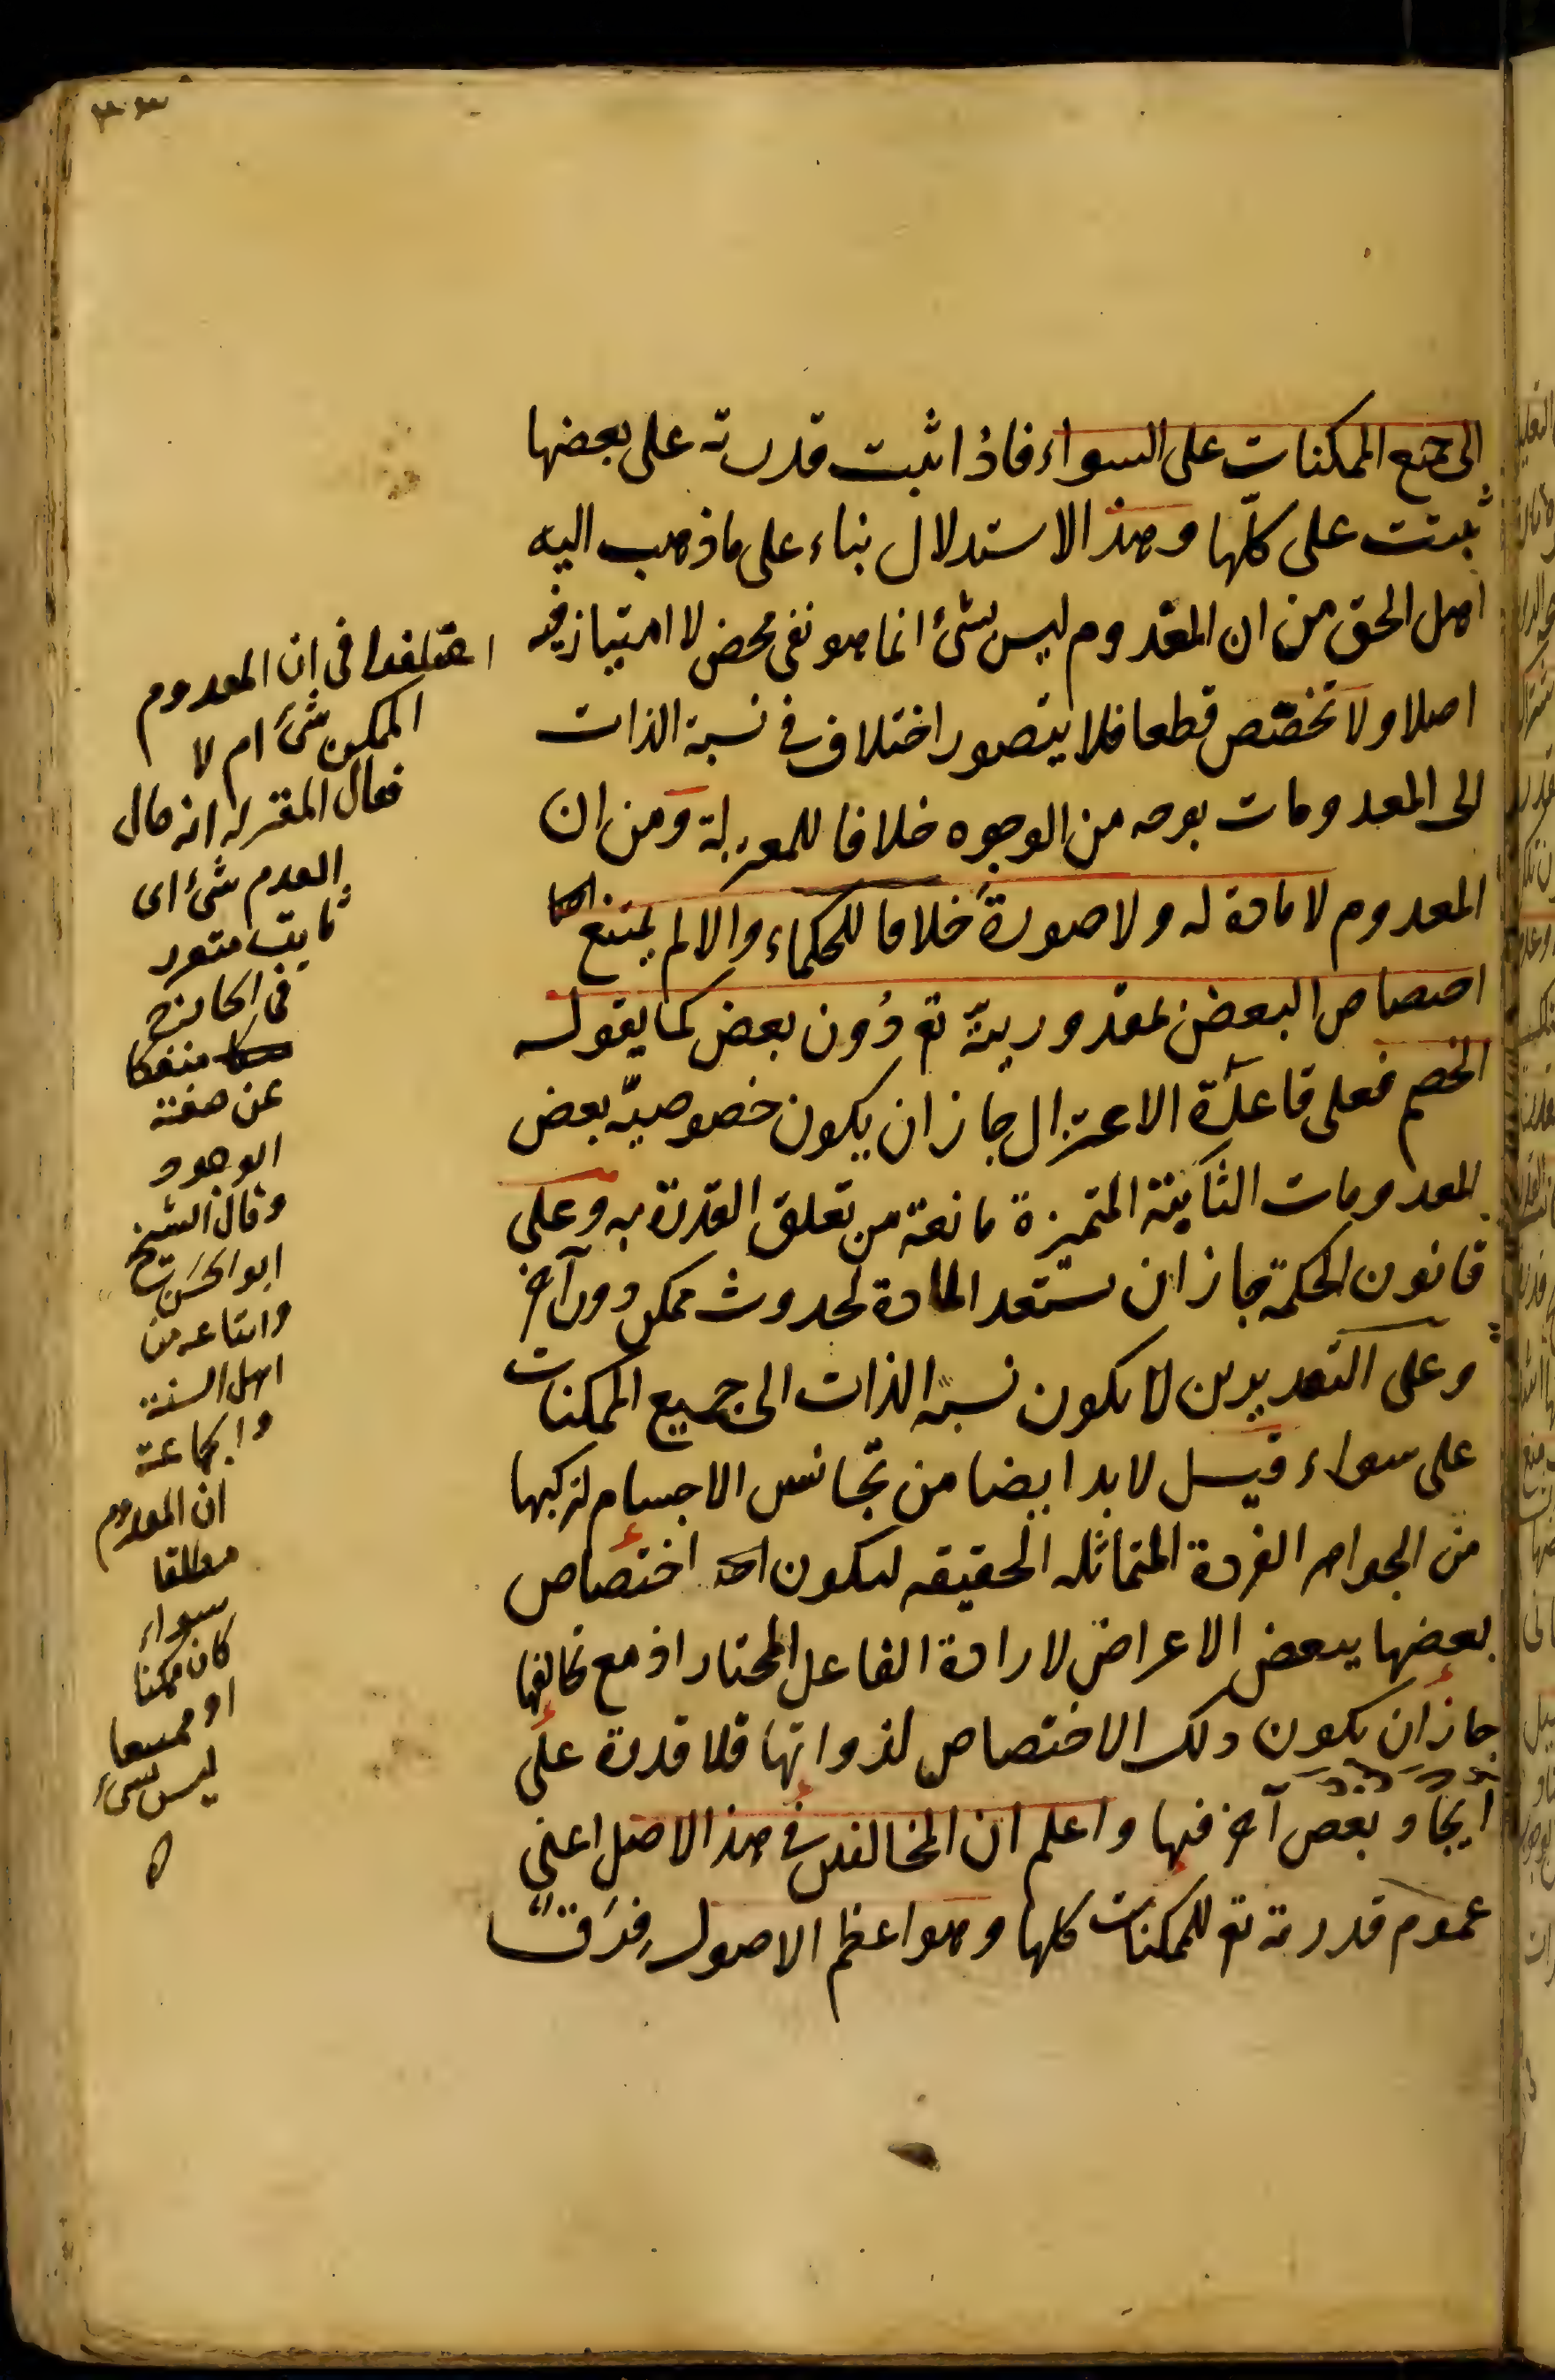 الى جميع الممكنات على السواء فاذا ثبت قدرته على بعضها
ثبتت على كلّها وهذا الاستدلال بناء على ما ذهب اليه
اهل الحق من ان المعدوم ليس بشئ انما هو نفى محض لا امتياز فيه
اصلا ولا تخصّص قطعا فلا يتصور اختلاف في نسبة الذات
الى المعدومات بوجه من الوجوه خلافا للمعتزلة ومن ان
المعدوم لا مادة له ولا صورة خلافا للحكماء والا لم يمتنع
اختصاص البعض بمقدوريته تع دون بعض كما يقوله
الخصم فعلى قاعدة الاعتزال جاز ان يكون خصوصيّة بعض
المعدومات الثابتة المتميزة مانعة من تعلق القدرة به وعلى
قانون الحكمة جاز ان تستعد المادة لحدوث ممكن دون آخر
وعلى التقديرين لا يكون نسبة الذات الى جميع الممكنات
على سواء قيل لا بد ايضا من تجانس الاجسام لتركبها
من الجواهر الفردة المتماثلة الحقيقه ليكون اختصاص
بعضها ببعض الاعراض لارادة الفاعل المختار اذ مع تخالفها
جاز ان يكون ذلك الاختصاص لذواتها فلا قدرة على
ايجاد بعض آخر فيها واعلم ان المخالفين في هذا الاصل اعنى
عموم قدرته تع للممكنات كلها وهو اعظم الاصول فرقٌ
اختلفوا فى ان المعدوم
الممكن شئ ام لا
فقال المعتزله انه حال
العدم شئ اى
ثابت متقرر
فى الخارج
منفكا
عن صفة
الوجود
وقال الشيخ
ابو الحسن
واتباعه من
اهل السنة
والجماعة
ان المعدوم
مطلقا
سواء
كان ممكنا
او ممتنعا
ليس بشئ